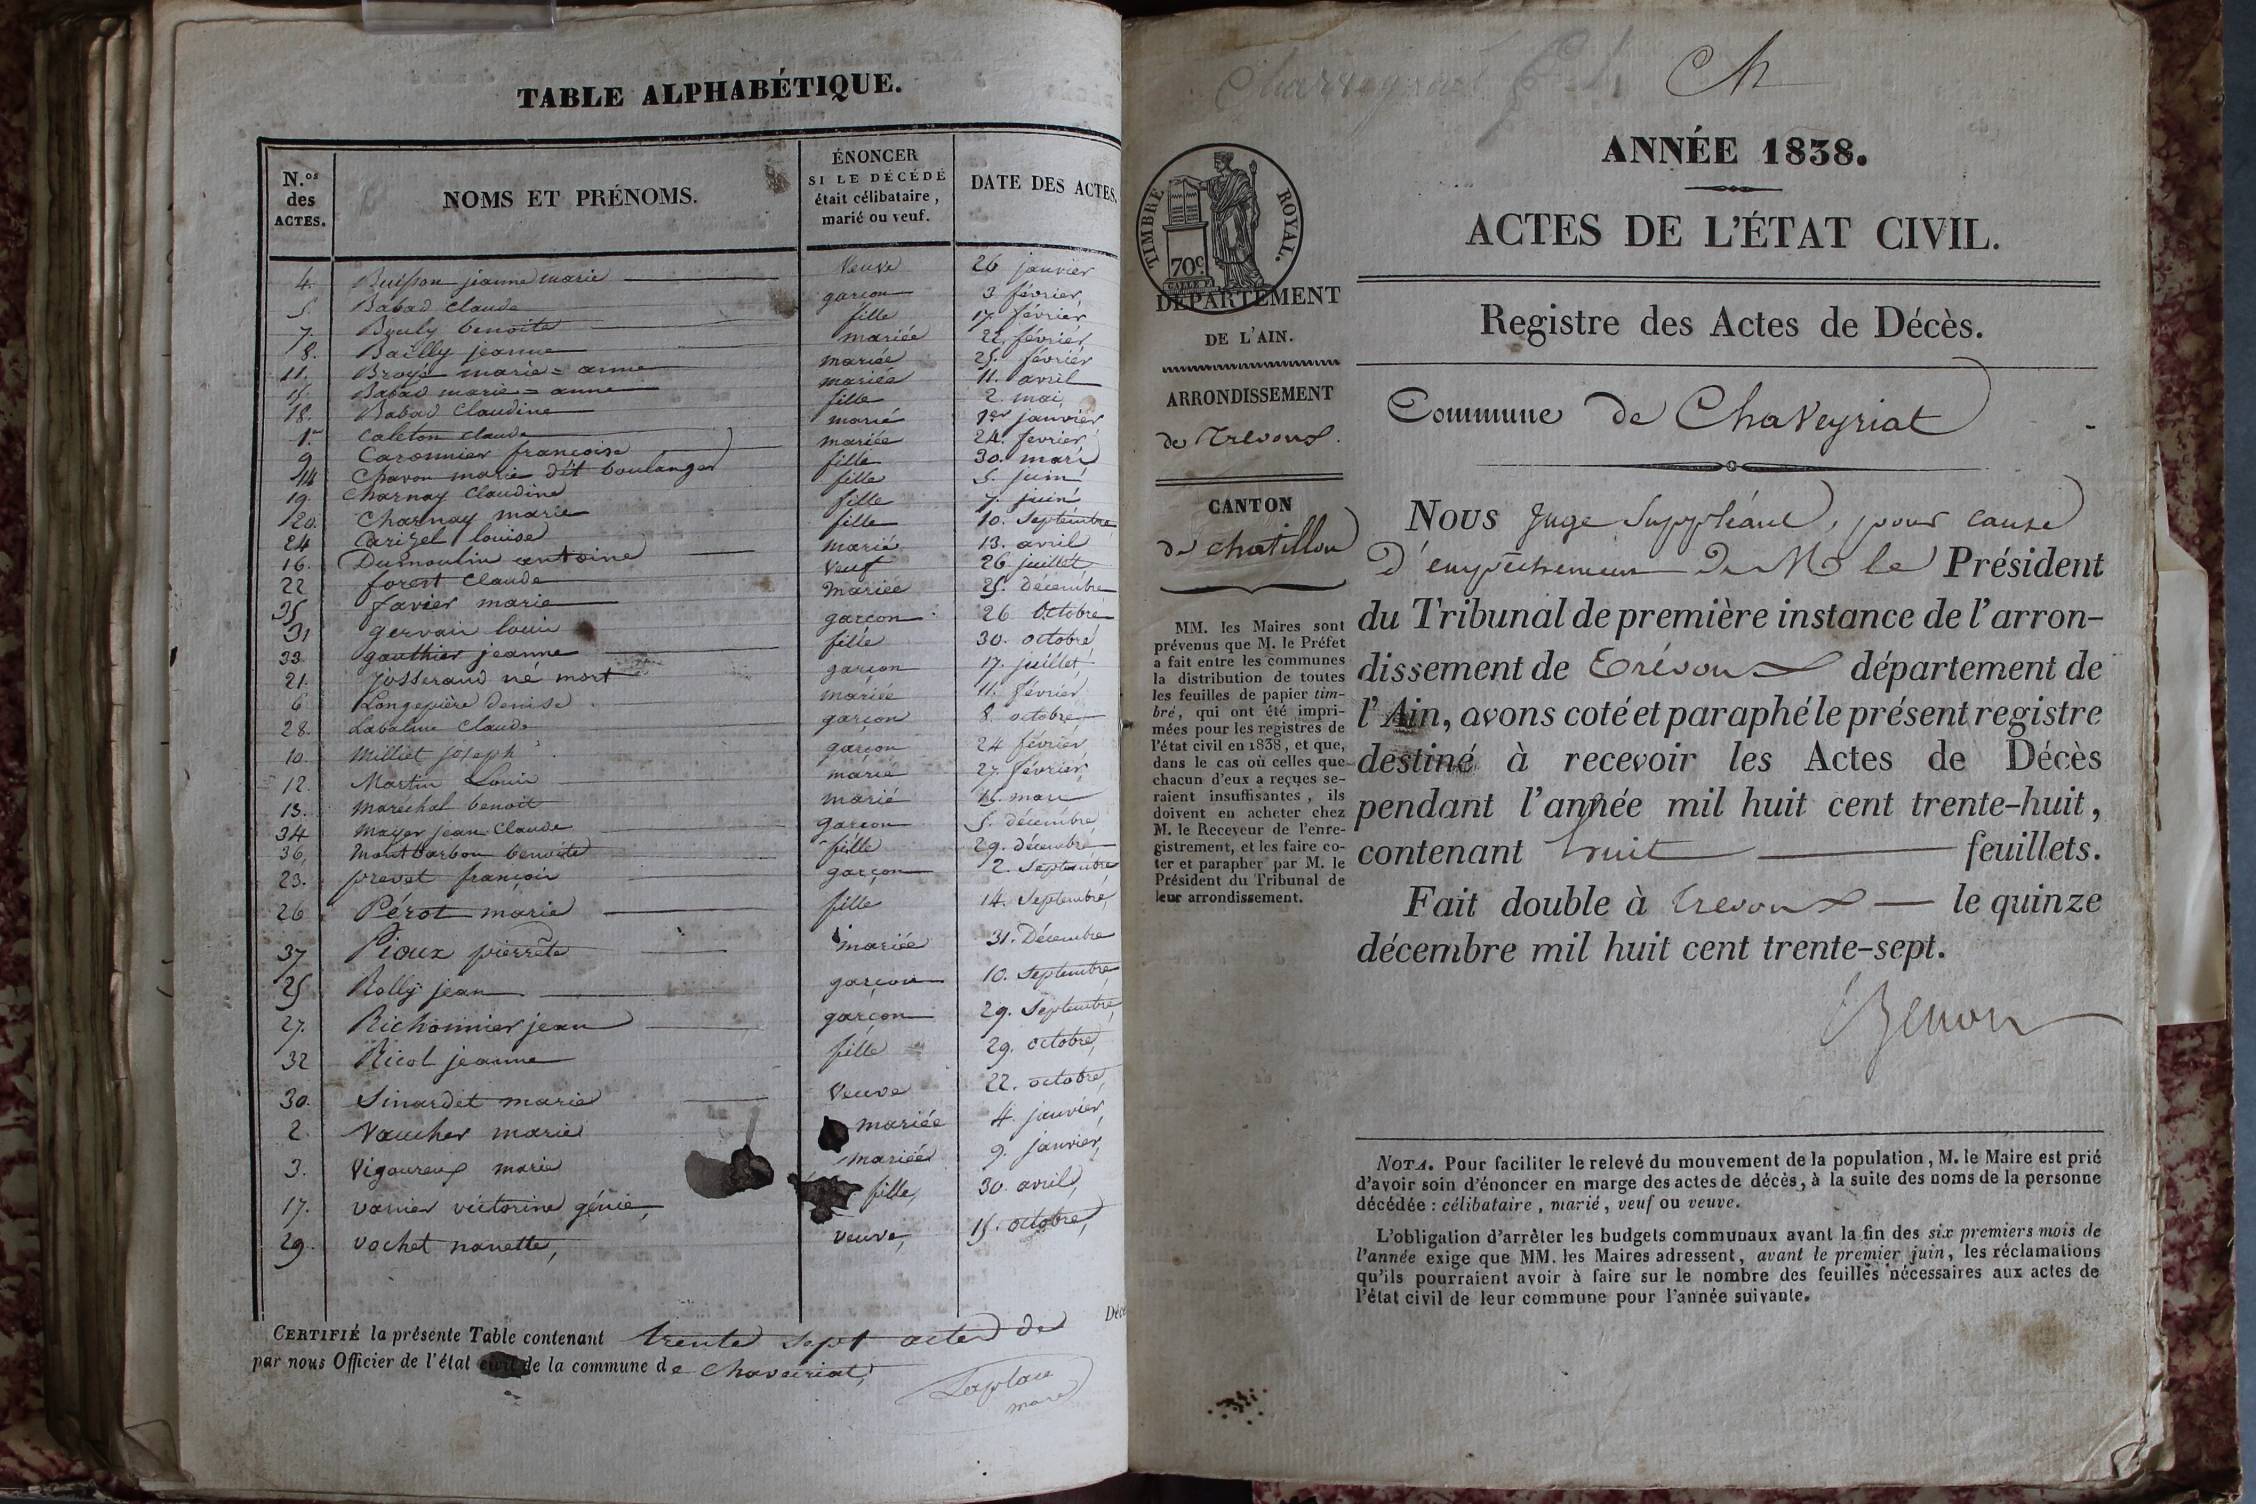 TABLE ALPHABÉTIQUE.
N.os des ACTES.
NOMS ET PRÉNOMS.
ÉNONCER
SI LE DÉCÉDÉ
était célibataire,
marié ou veuf.
DATE DES ACTES.
4. Buisson jeanne marie veuve 26 janvier
5. Babad claude garçon 3 février
7. Bouly benoite fille 17. février
8. Bailly jeanne mariée 22. février
11. Broyé marie=anne mariée 25. février
15. Babad marie=anne mariée 11. avril
18. Babad Claudine fille 2. mai
1er Caleton claude marié 1er janvier
9 Caronnier françoise mariée 24. fevrier
14 Chavon marie dit boulanger fille 30. mars
19. Charnay Claudine fille 5. juin
20. Charnay marie fille 7. juin
24 Carizel louise fille 10. Septembre
16. Dumoulin antoine marié 13. avril
22 forest Claude veuf 26 juillet
35 favier marie mariée 25. décembre
31 gervais louis garçon 26 Octobre
33 gauthier jeanne fille 30. octobre
21. josserand né mort garçon 17. juillet
6 Longepière denise mariée 11. février
28. Labalme Claude garçon 8. octobre
10. Milliet joseph garçon 24 février
12. Martin Louis marié 27. février
13. maréchal benoit marié 15. mars
34 mayer jean Claude garçon 5. décembre
36, montbarbon benoite fille 29. décembre
23. prevet françois garçon 2. Septembre
26 Pérot marie fille 14. Septembre
37 Pioux pierrete mariée 31. Décembre
25 Rolly jean garçon 10. Septembre
27. Richonnier jean garçon 29. Septembre
32 Ricol jeanne fille 29. octobre
30. Sinardet marie veuve 22. octobre
2. Vaucher marie mariée 4. janvier
3. Vigoureux marie mariée 9. janvier
17. varnier victorine génie, fille, 30. avril
29. vochet nanette, veuve, 15. octobre
CERTIFIÉ la présente Table contenant trente sept actes de Déc
par nous Officier de l'état civil de la commune de Chaveiriat,
Laplace
maire
Ch
TIMBRE ROYAL.
70c.
ANNÉE 1838.
ACTES DE L'ÉTAT CIVIL.
Registre des Actes de Décès.
Commune de Chaveyriat
DÉPARTEMENT
DE L'AIN.
ARRONDISSEMENT
de Trevoux.
CANTON
de chatillon
MM. les Maires sont
prévenus que M. le Préfet
a fait entre les communes
la distribution de toutes
les feuilles de papier tim-
bré, qui ont été impri-
mées pour les registres de
l'état civil en 1838, et que,
dans le cas où celles que
chacun d'eux a reçues se-
raient insuffisantes, ils
doivent en acheter chez
M. le Receveur de l'enre-
gistrement, et les faire co-
ter et parapher par M. le
Président du Tribunal de
leur arrondissement.
NOUS juge Suppléant, pour cause
d'empêchement de M. le Président
du Tribunal de première instance de l'arron-
dissement de Trévoux département de
l'Ain, avons coté et paraphé le présent registre
destiné à recevoir les Actes de Décès
pendant l'année mil huit cent trente-huit,
contenant huit feuillets.
Fait double à trevoux le quinze
décembre mil huit cent trente-sept.
NOTA. Pour faciliter le relevé du mouvement de la population, M. le Maire est prié
d'avoir soin d'énoncer en marge des actes de décès, à la suite des noms de la personne
décédée : célibataire, marié, veuf ou veuve.
L'obligation d'arrêter les budgets communaux avant la fin des six premiers mois de
l'année exige que MM. les Maires adressent, avant le premier juin, les réclamations
qu'ils pourraient avoir à faire sur le nombre des feuilles nécessaires aux actes de
l'état civil de leur commune pour l'année suivante.